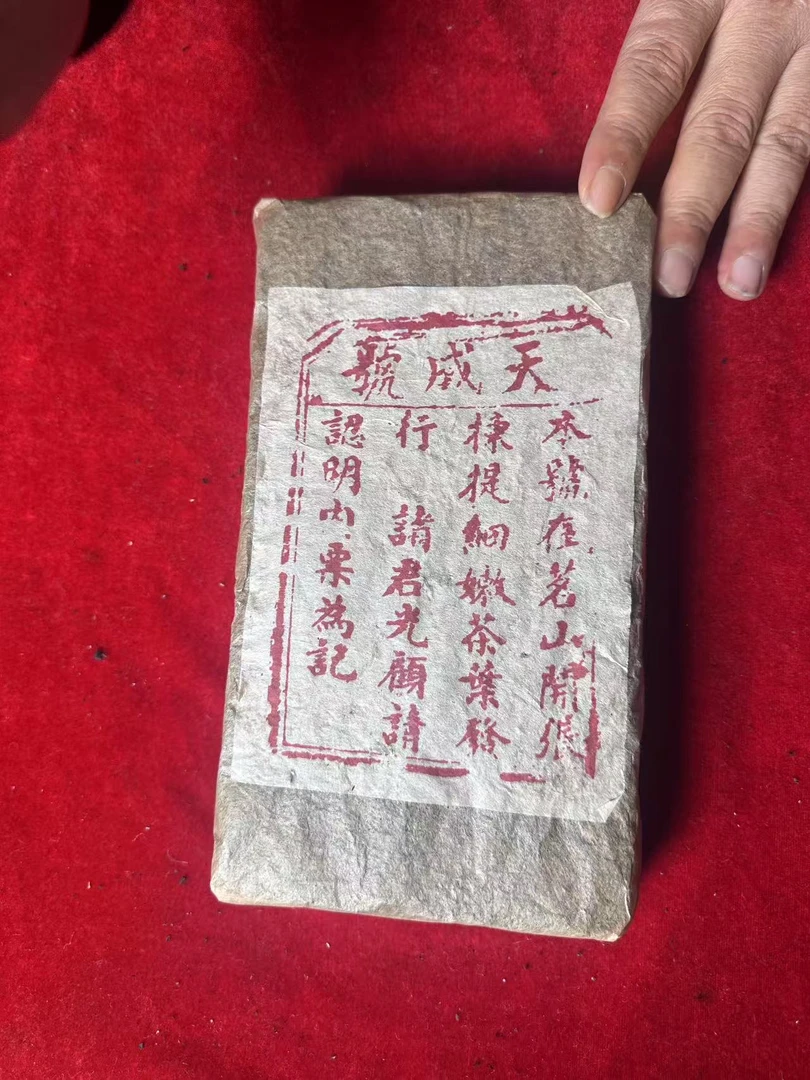 天成號
本號在茗山開張
揀提細嫩茶葉發
行 諸君光顧請
認明內票為記